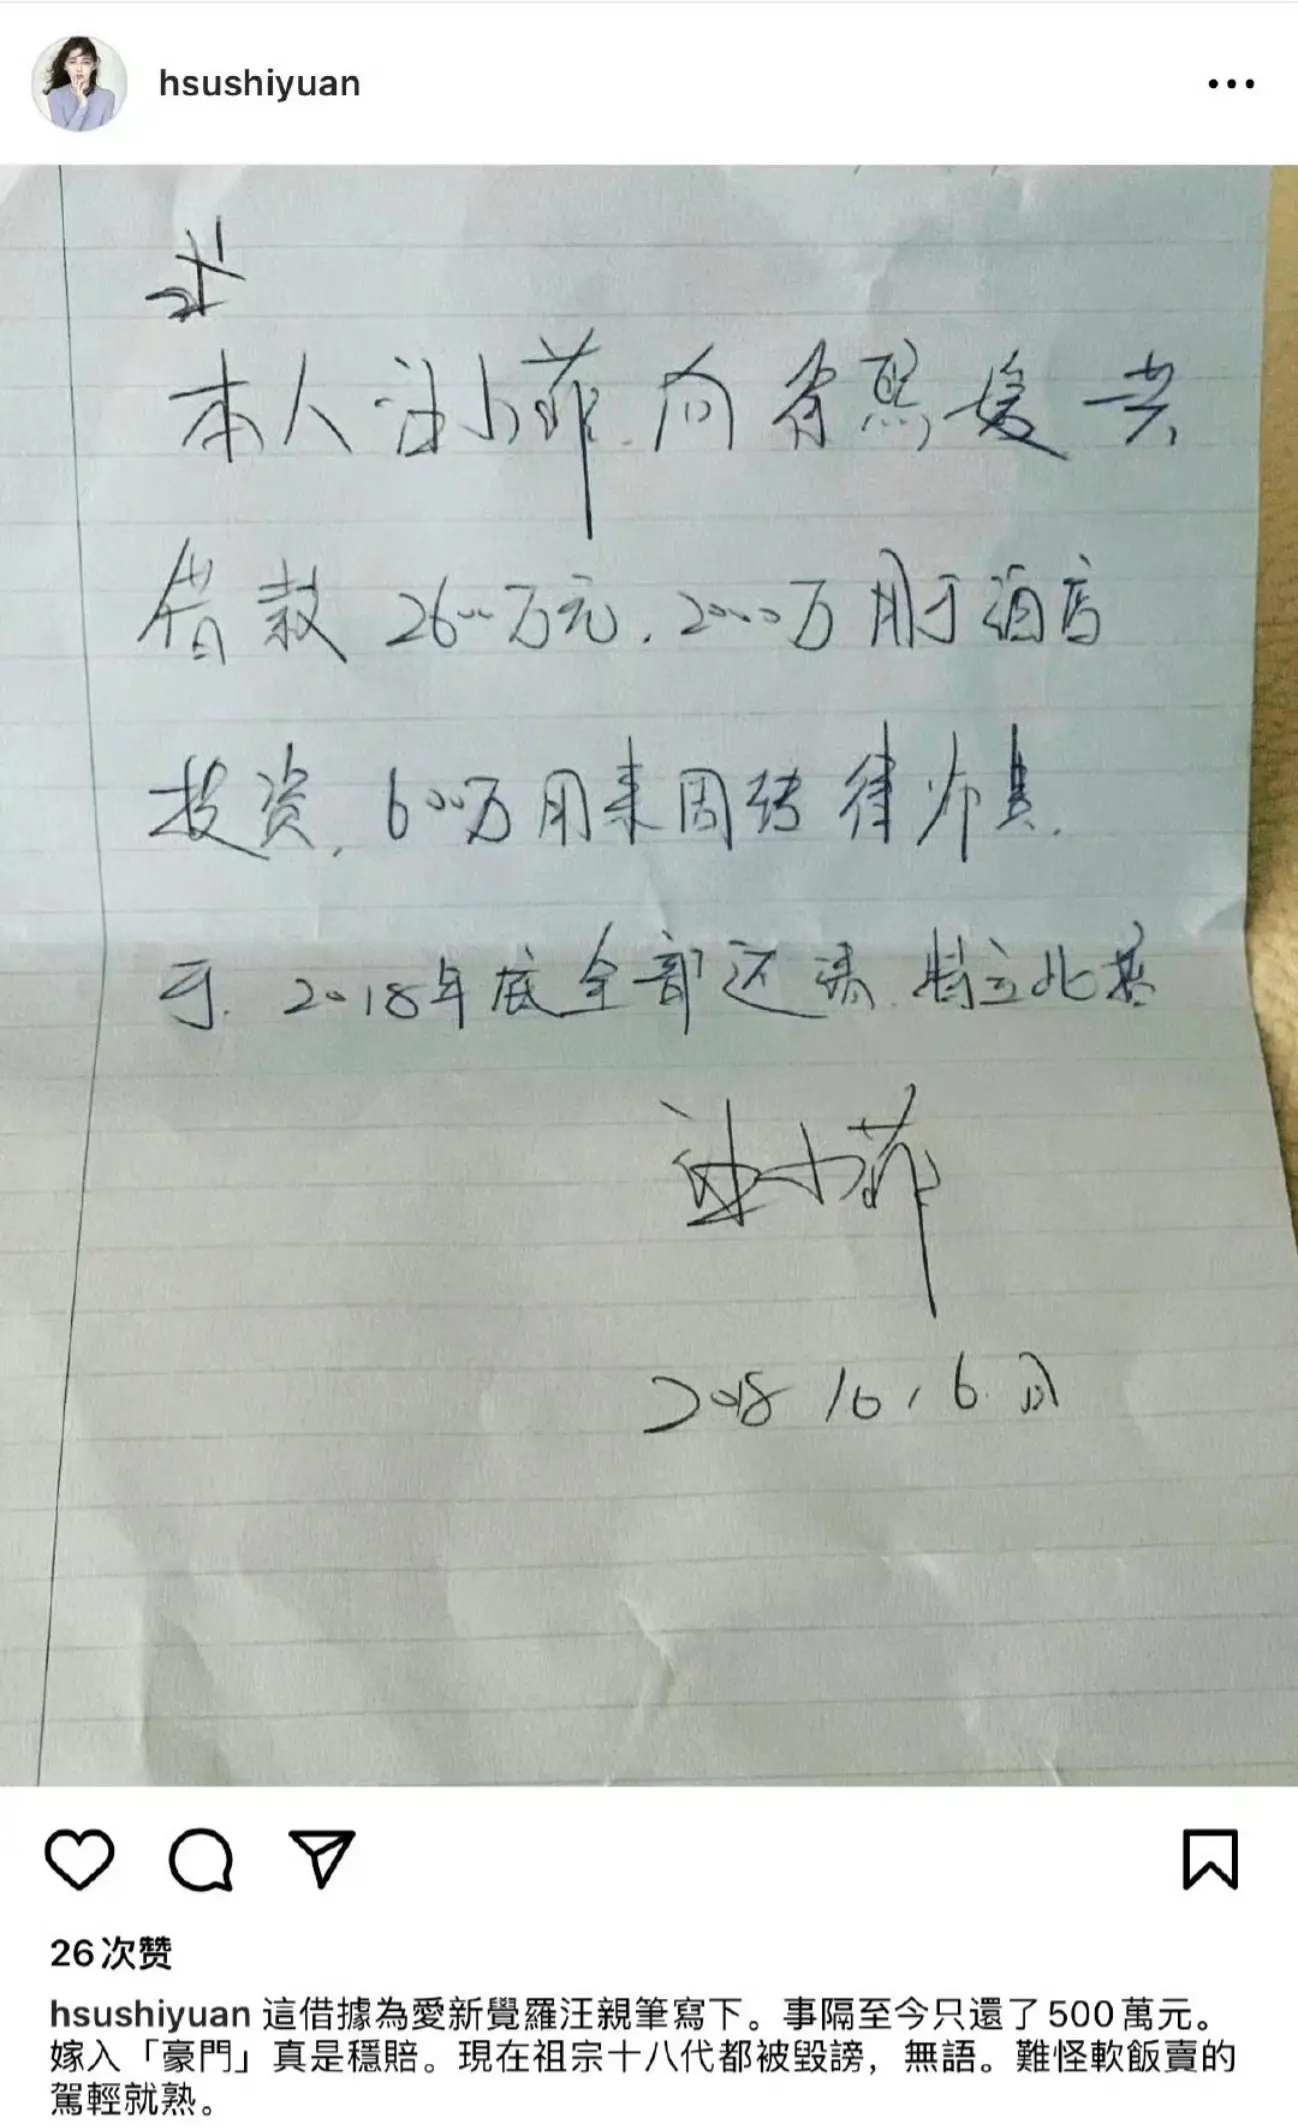 hsushiyuan
本人汪小菲向徐熙媛共
借款2600万元.2000万用于酒店
投资,600万用来周转律师费.
于.2018年底全部还清.特立此据
汪小菲
2018 10,6.日
26次赞
hsushiyuan 這借據為愛新覺羅汪親筆寫下。事隔至今只還了500萬元。
嫁入「豪門」真是穩賠。現在祖宗十八代都被毀謗，無語。難怪軟飯賣的
駕輕就熟。